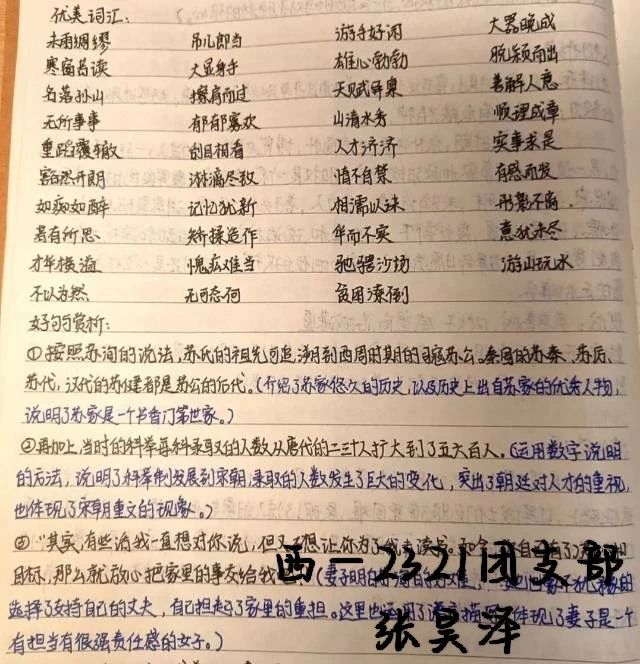 优美词汇:
未雨绸缪 吊儿郎当 游手好闲 大器晚成
寒窗苦读 大显身手 雄心勃勃 脱颖而出
名落孙山 擦肩而过 天赋异禀 善解人意
无所事事 郁郁寡欢 山清水秀 顺理成章
重蹈覆辙 刮目相看 人才济济 实事求是
豁然开朗 淋漓尽致 情不自禁 有感而发
如痴如醉 记忆犹新 相濡以沫 形影不离.
若有所思 矫揉造作 华而不实 意犹未尽
才华横溢 愧疚难当 驰骋沙场 游山玩水
不以为然 无可奈何 贫困潦倒
好句赏析:
①按照苏洵的说法,苏氏的祖先可追溯到西周时期的司寇苏公。秦国的苏秦、苏厉、
苏代,汉代的苏建都是苏公的后代。(介绍了苏家悠久的历史,以及历史上出自苏家的优秀人物,
说明了苏家是一个书香门第世家。)
②再加上,当时的科举每科录取的人数从唐代的二三十人扩大到了五六百人。(运用数字说明
的方法,说明了科举制发展到宋朝,录取的人数发生了巨大的变化,突出了朝廷对人才的重视,
也体现了宋朝重文的现象。)
③"其实,有些话我一直想对你说,但又不想让你为了我去读书。如今
目标,那么就放心把家里的事交给我 (妻子明
选择了支持自己的丈夫,自己担起了家里的重担。这里也运用了语言描 体现了妻子是一个
有担当有很强责任感的女子。)
西一2321团支部
张昊泽